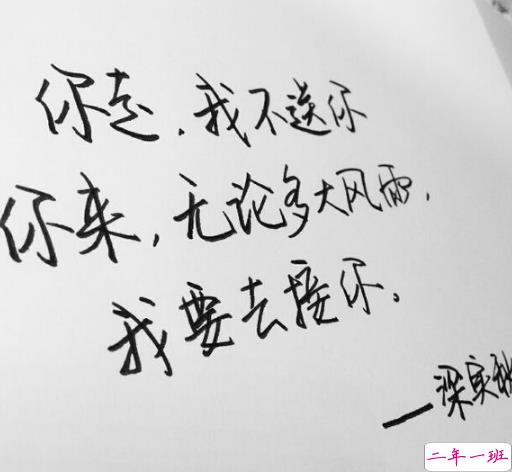 你走,我不送你
你来,无论多大风雨,
我要去接你。
—梁实秋
二年一班